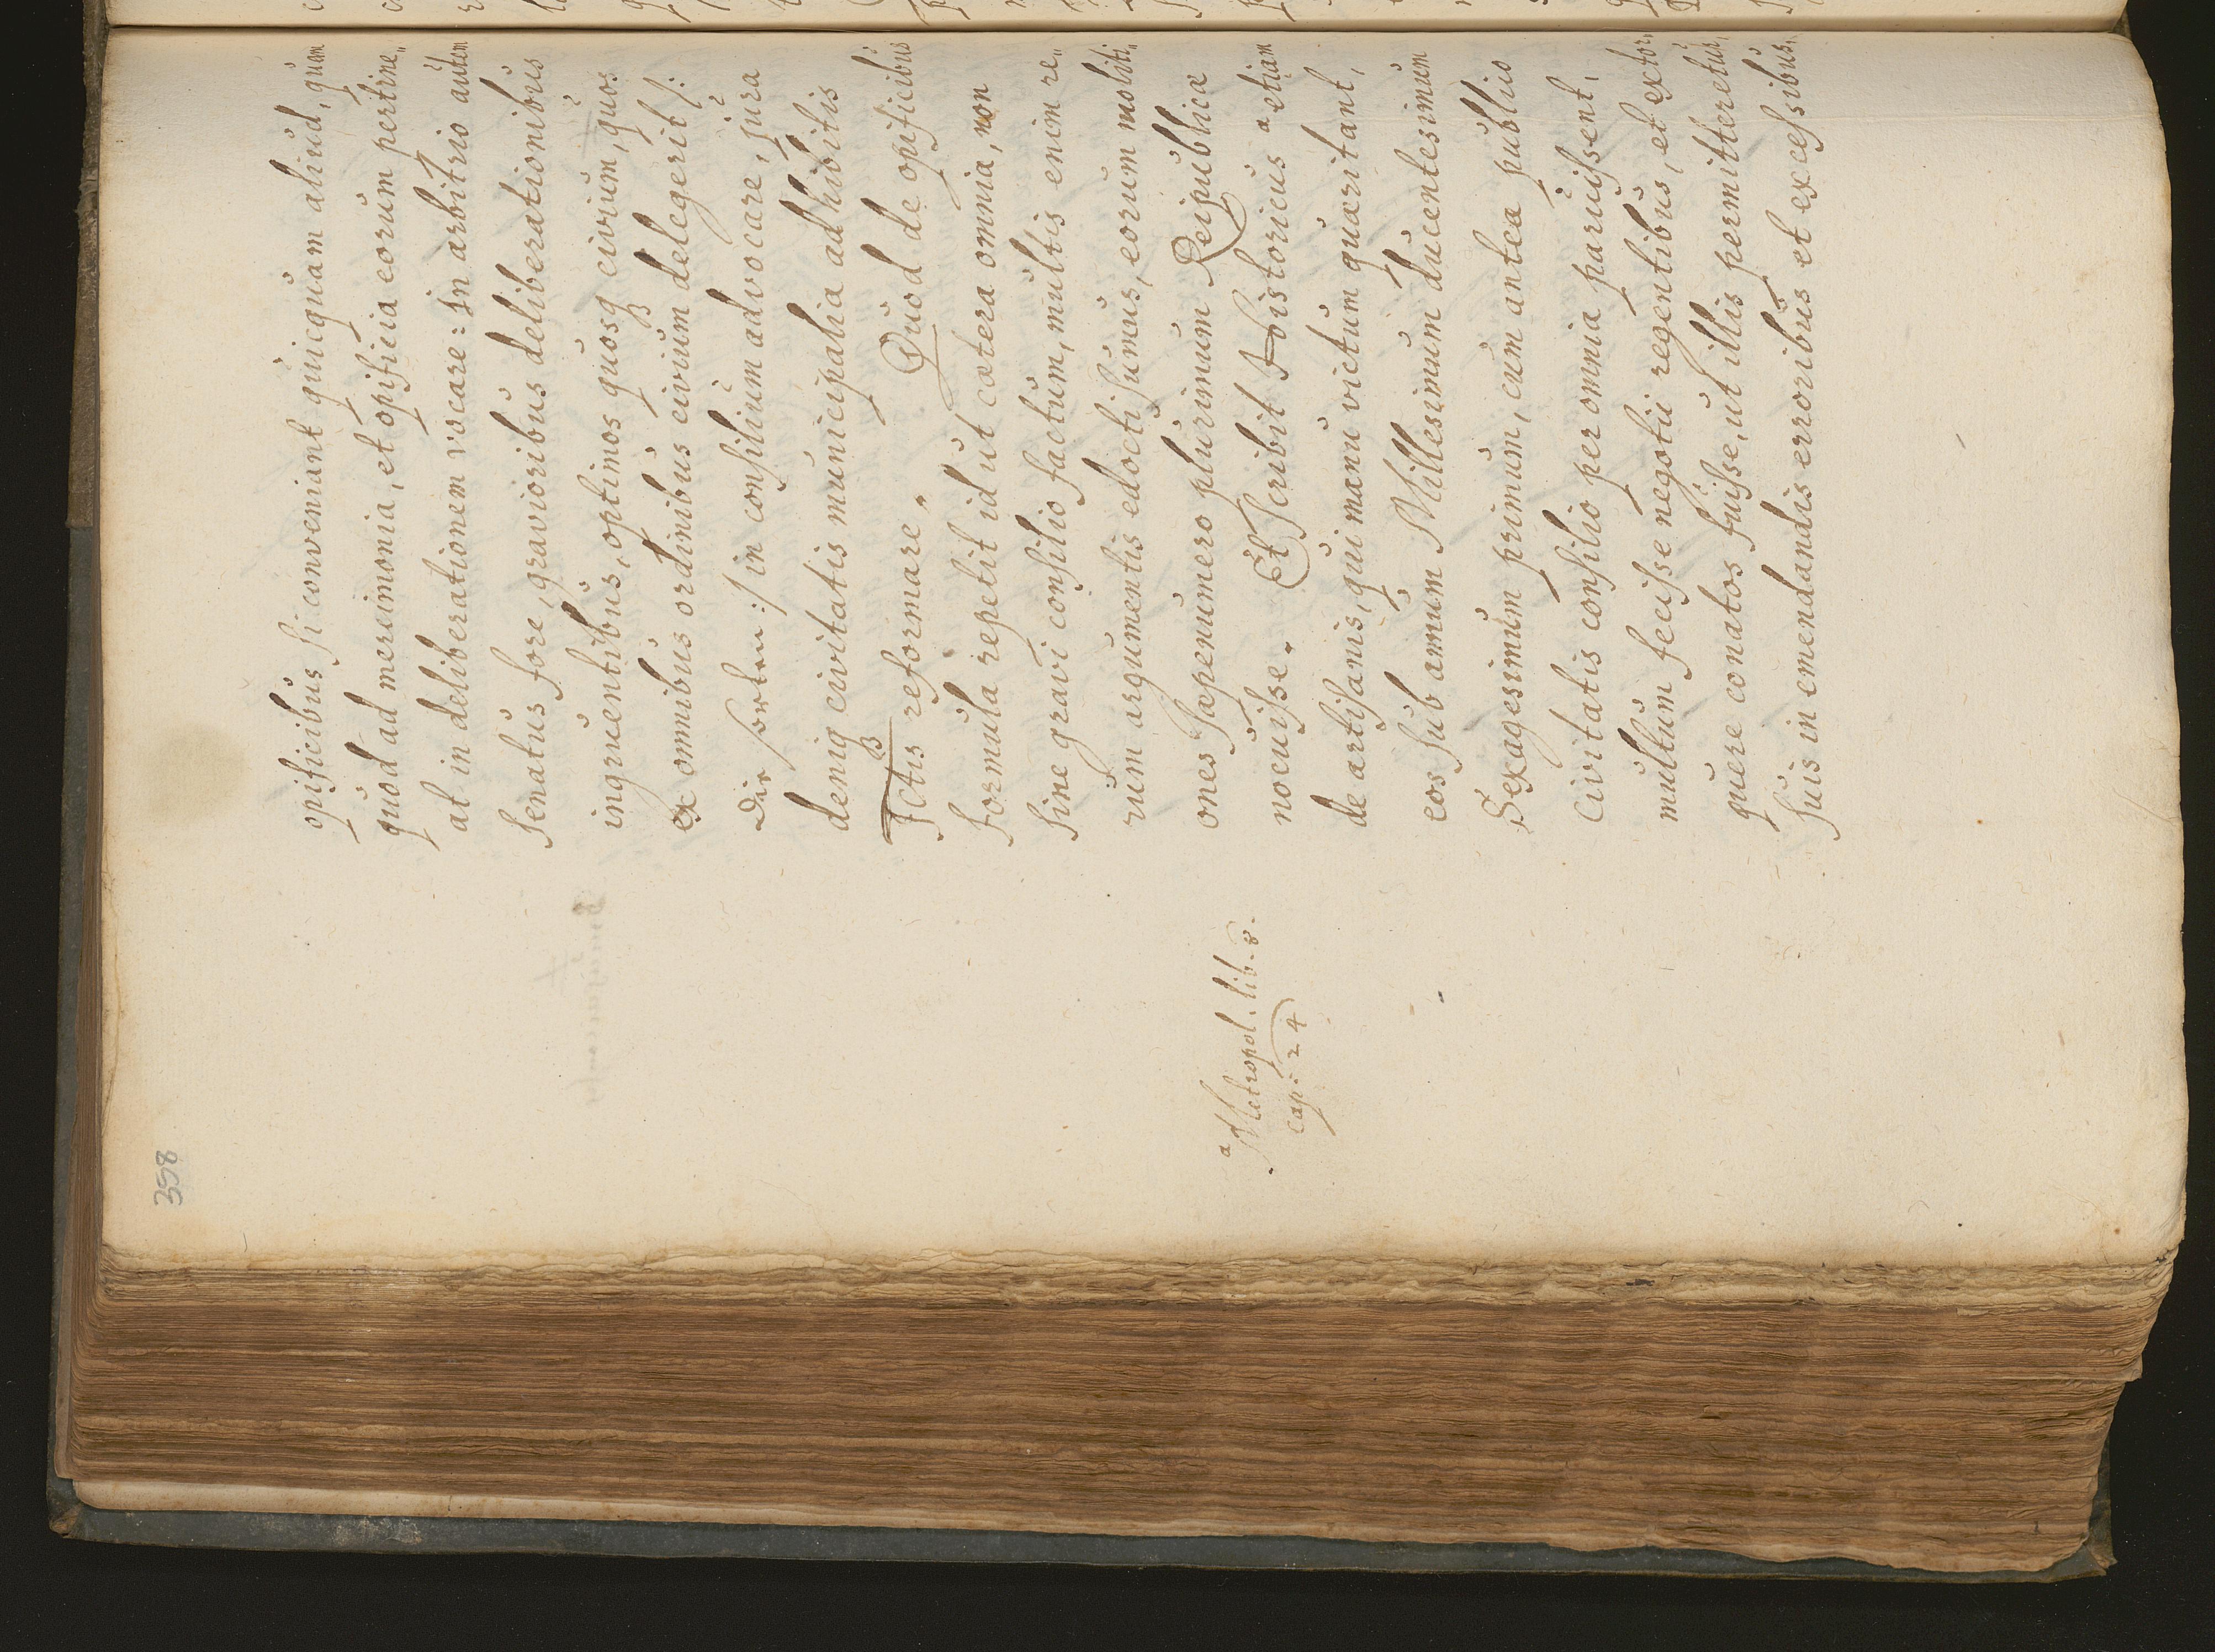 358
opificibus si conveniant quicquam aliud, quam
quod ad mercimonia, et opificia eorum pertine„
at in deliberationem vocare: In arbitrio autem
Senatus fore, gravioribus deliberationibus
ingruentibus, optimos quosq civium, quos
ex omnibus ordinibus civium delegerit /:
:/ in consilium advocare, jura
deniq civitatis municipalia adhibitis
JCtis reformare„ Quod de opificibus
formula repetit id ut cætera omnia, non
sine gravi consilio factum, multis enim re„
rum argumentis edocti sumus, eorum moliti„
ones sæpenumero plurimum Reipublicæ
nocuisse. Et scribit Historicus a etiam
de artisanis, qui manu victum quæritant,
eos sub annum Millesimum ducentesimum
Sexagesimum primum, cum antea publio
Civitatis consilio per omnia paruissent,
multum fecisse negotii regentibus, et extor„
quere conatos fuisse, ut illis permitteretur,
suis in emendandis erroribus et excessibus,
a Metropol. lib. 8.
cap. 24